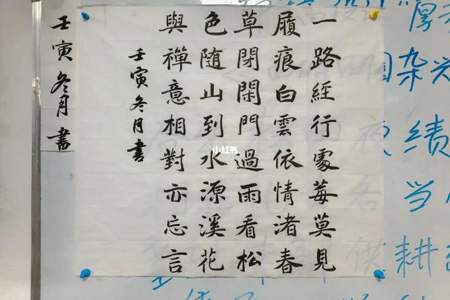 一路經行處莓莫見
履痕白雲依情渚春
草閉閑門過雨看松
色隨山到水源溪花
與禪意相對亦忘言
壬寅冬月書
壬寅冬月書
小红书
杂
绩
当
耕